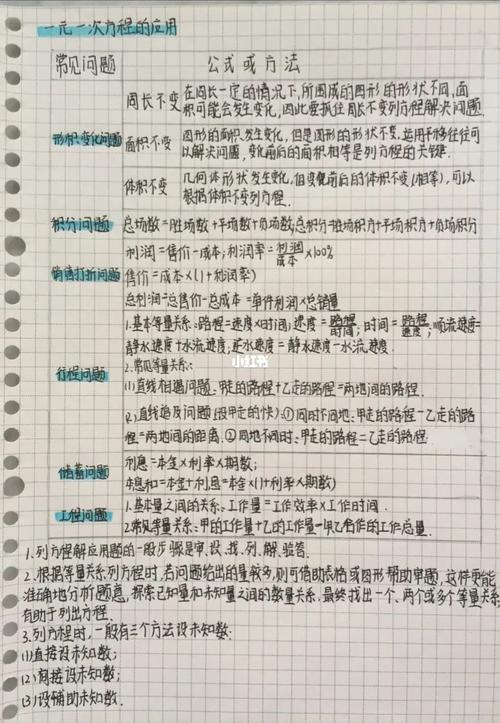 一元一次方程的应用
常见问题 公式或方法
周长不变 在周长一定的情况下,所围成的图形的形状不同,面
积可能会发生变化,因此要抓住周长不变列方程解决问题.
形积变化问题 面积不变 图形的面积发生变化,但是图形的形状不变,运用平移往往可
以解决问题,变化前后的面积相等是列方程的关键.
体积不变 几何体形状发生变化,但变化前后的体积不变(相等),可以
根据体积不变列方程.
积分问题 总场数=胜场数+平场数+负场数;总积分=胜场积分+平场积分+负场积分
利润=售价-成本;利润率=利润/成本×100%
销售打折问题 售价=成本×(1+利润率)
总利润=总售价-总成本=单件利润×总销量
1.基本等量关系:路程=速度×时间;速度=路程/时间;时间=路程/速度;顺流速度=
静水速度+水流速度;逆水速度=静水速度-水流速度.
2.常见等量关系:
行程问题 (1)直线相遇问题:甲走的路程+乙走的路程=两地间的路程.
(2)直线追及问题(设甲走的快):①同时不同地:甲走的路程-乙走的路
程=两地间的距离.②同地不同时:甲走的路程=乙走的路程.
储蓄问题 利息=本金×利率×期数;
本息和=本金+利息=本金×(1+利率×期数)
工程问题 1.基本量之间的关系:工作量=工作效率×工作时间.
2.常见等量关系:甲的工作量+乙的工作量=甲乙合作的工作总量.
1.列方程解应用题的一般步骤是审、设、找、列、解、验答.
2.根据等量关系列方程时,若问题给出的量较多,则可借助表格或图形帮助审题,这样更能
准确地分析题意,探索已知量和未知量之间的数量关系,最终找出一个、两个或多个等量关系
有助于列出方程.
3.列方程时,一般有三个方法设未知数:
(1)直接设未知数;
(2)间接设未知数;
(3)设辅助未知数.
小红书